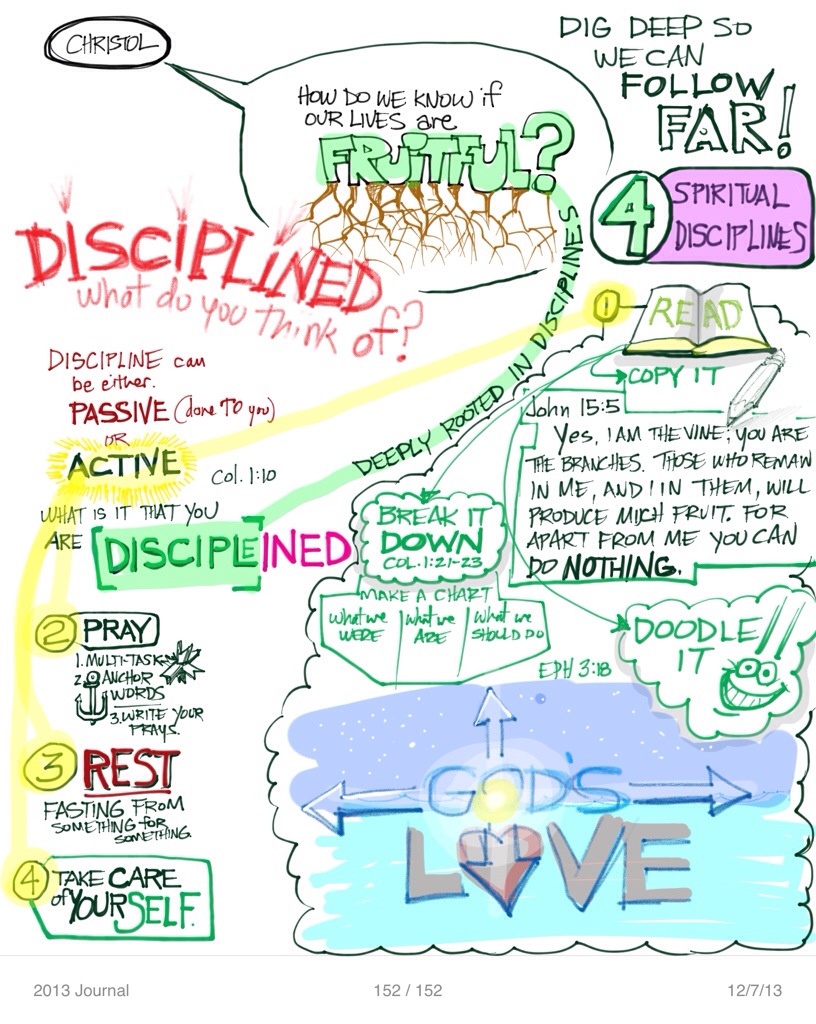 CHRISTOL
DIG DEEP SO
WE CAN
FOLLOW
FAR!
HOW DO WE KNOW if
OUR LIVES are
FRUITFUL?
4
SPIRITUAL
DISCIPLINES
DISCIPLINED
what do you think of?
DEEPLY ROOTED IN DISCIPLINES
DISCIPLINE can
be either.
PASSIVE (done TO you)
OR
ACTIVE
Col. 1:10
WHAT IS IT THAT YOU
ARE [DISCIPLE]INED
1
READ
COPY IT
John 15:5
Yes, I AM THE VINE; YOU ARE
THE BRANCHES. THOSE WHO REMAIN
IN ME, AND I IN THEM, WILL
PRODUCE MUCH FRUIT. FOR
APART FROM ME YOU CAN
DO NOTHING.
BREAK IT
DOWN
COL. 1:21-23
MAKE A CHART
what we
WERE
what we
ARE
what we
SHOULD DO
DOODLE
IT
EPH 3:18
GOD'S
LOVE
2 PRAY
1. MULTI-TASK
2. ANCHOR
WORDS
3. WRITE YOUR
PRAYS.
3 REST
FASTING FROM
SOMETHING FOR
SOMETHING
4 TAKE CARE
of YOURSELF.
2013 Journal
152 / 152
12/7/13